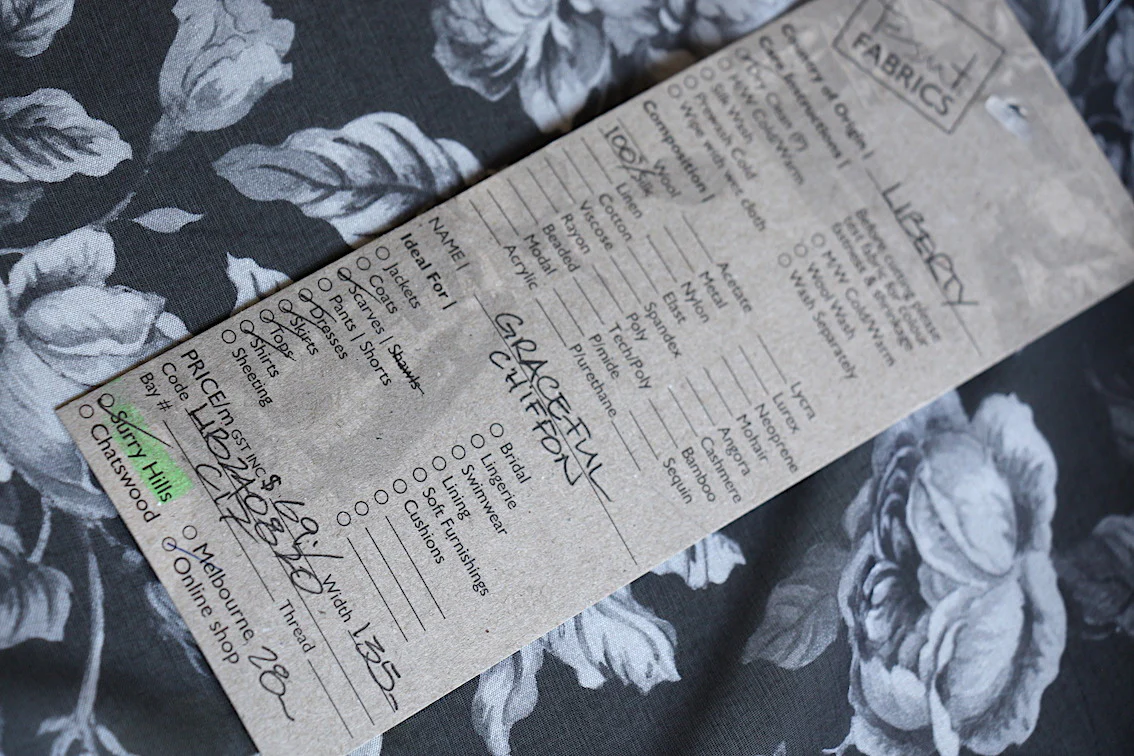 FABRICS
Country of Origin | LIBERTY
Care Instructions |
Before cutting please
test fabric for colour
fastness & shrinkage
Dry Clean (P)
H/W Cold/Warm
Silk Wash
Prewash Cold
Wipe with wet cloth
M/W Cold/Warm
Wool Wash
Wash Separately
Composition |
Wool
100% Silk
Linen
Cotton
Viscose
Rayon
Beaded
Modal
Acrylic
Acetate
Metal
Nylon
Elast
Spandex
Poly
Tech/Poly
P/mide
P/urethane
Lycra
Lurex
Neoprene
Mohair
Angora
Cashmere
Bamboo
Sequin
NAME | GRACEFUL
CHIFFON
Ideal For |
Jackets
Coats
Scarves | Shawls
Pants | Shorts
Dresses
Skirts
Tops
Shirts
Sheeting
Bridal
Lingerie
Swimwear
Lining
Soft Furnishings
Cushions
PRICE/m GST INC $ 69 Width 135
Code
Bay # Thread
Surry Hills
Chatswood
Melbourne, 28
Online shop